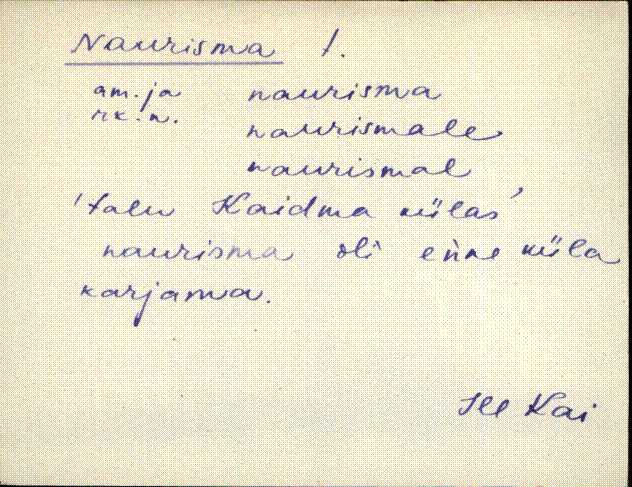 Naurisma 1.
am. ja naurisma
rk. n. naurismale
naurismal
'talu Kaidma külas'
naurisma oli enne küla
karjama.
Kai